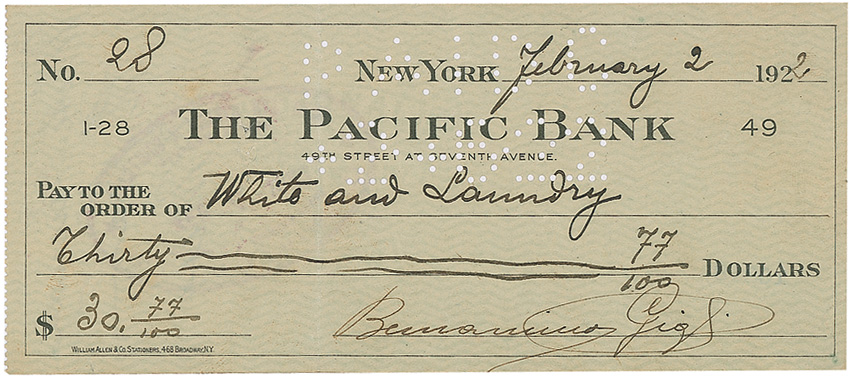 No. 28 NEW YORK February 2 1922
1-28 THE PACIFIC BANK 49
49TH STREET AT SEVENTH AVENUE.
PAY TO THE
ORDER OF White and Laundry
Thirty 77/100 DOLLARS
$ 30. 77/100 Benamino Gigli
WILLIAM ALLEN & CO. STATIONERS, 468 BROADWAY, N.Y.